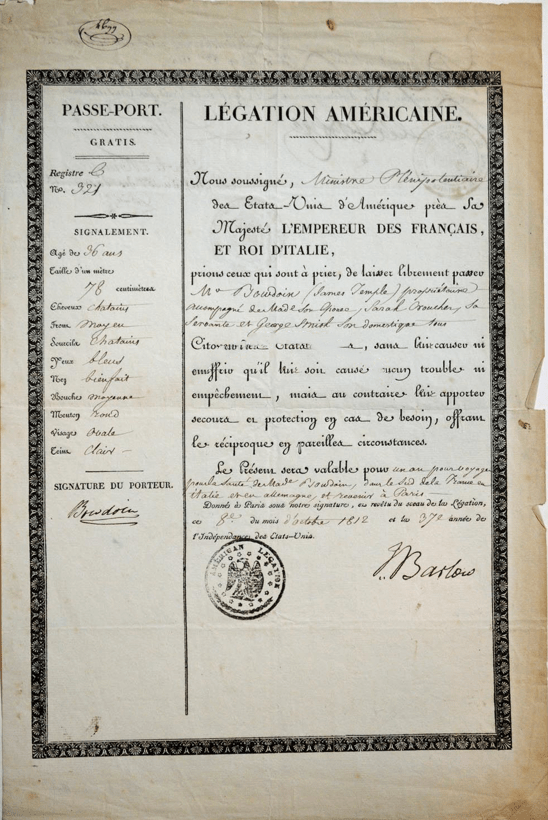 PASSE-PORT.
GRATIS.
Registre C
No. 321
SIGNALEMENT.
Agé de 36 ans
Taille d'un mètre
78 centimètres
Cheveux chatains
Front moyen
Sourcils Chatains
Yeux bleus
Nez bienfait
Bouche moyenne
Menton rond
Visage ovale
Teint Clair
SIGNATURE DU PORTEUR.
Bowdoin
LÉGATION AMÉRICAINE.
Nous soussigné, Ministre Plénipotentiaire
des Etats-Unis d'Amérique près Sa
Majesté L'EMPEREUR DES FRANÇAIS,
ET ROI D'ITALIE,
prions ceux qui sont à prier, de laisser librement passer
Mr Bowdoin (James Temple) propriétaire
accompagné de Made Son épouse, Sarah Croucher, Sa
Servante et George Smith Son domestique tous
Citoyens des Etats, sans lui causer ni
souffrir qu'il lui soit causé aucun trouble ni
empêchement, mais au contraire lui apporter
secours et protection en cas de besoin, offrant
le réciproque en pareilles circonstances.
Le Présent sera valable pour un an pour voyager
pour la Santé de Made Bowdoin, dans le Sud de la France, en
Italie et en allemagne, et revenir à Paris
Donnés à Paris sous notre signature, et revêtu du sceau de la Légation,
ce 8e du mois d'octobre 1812 et la 37e année de
l'Indépendance des Etats-Unis.
AMERICAN LEGATION
J Barlow